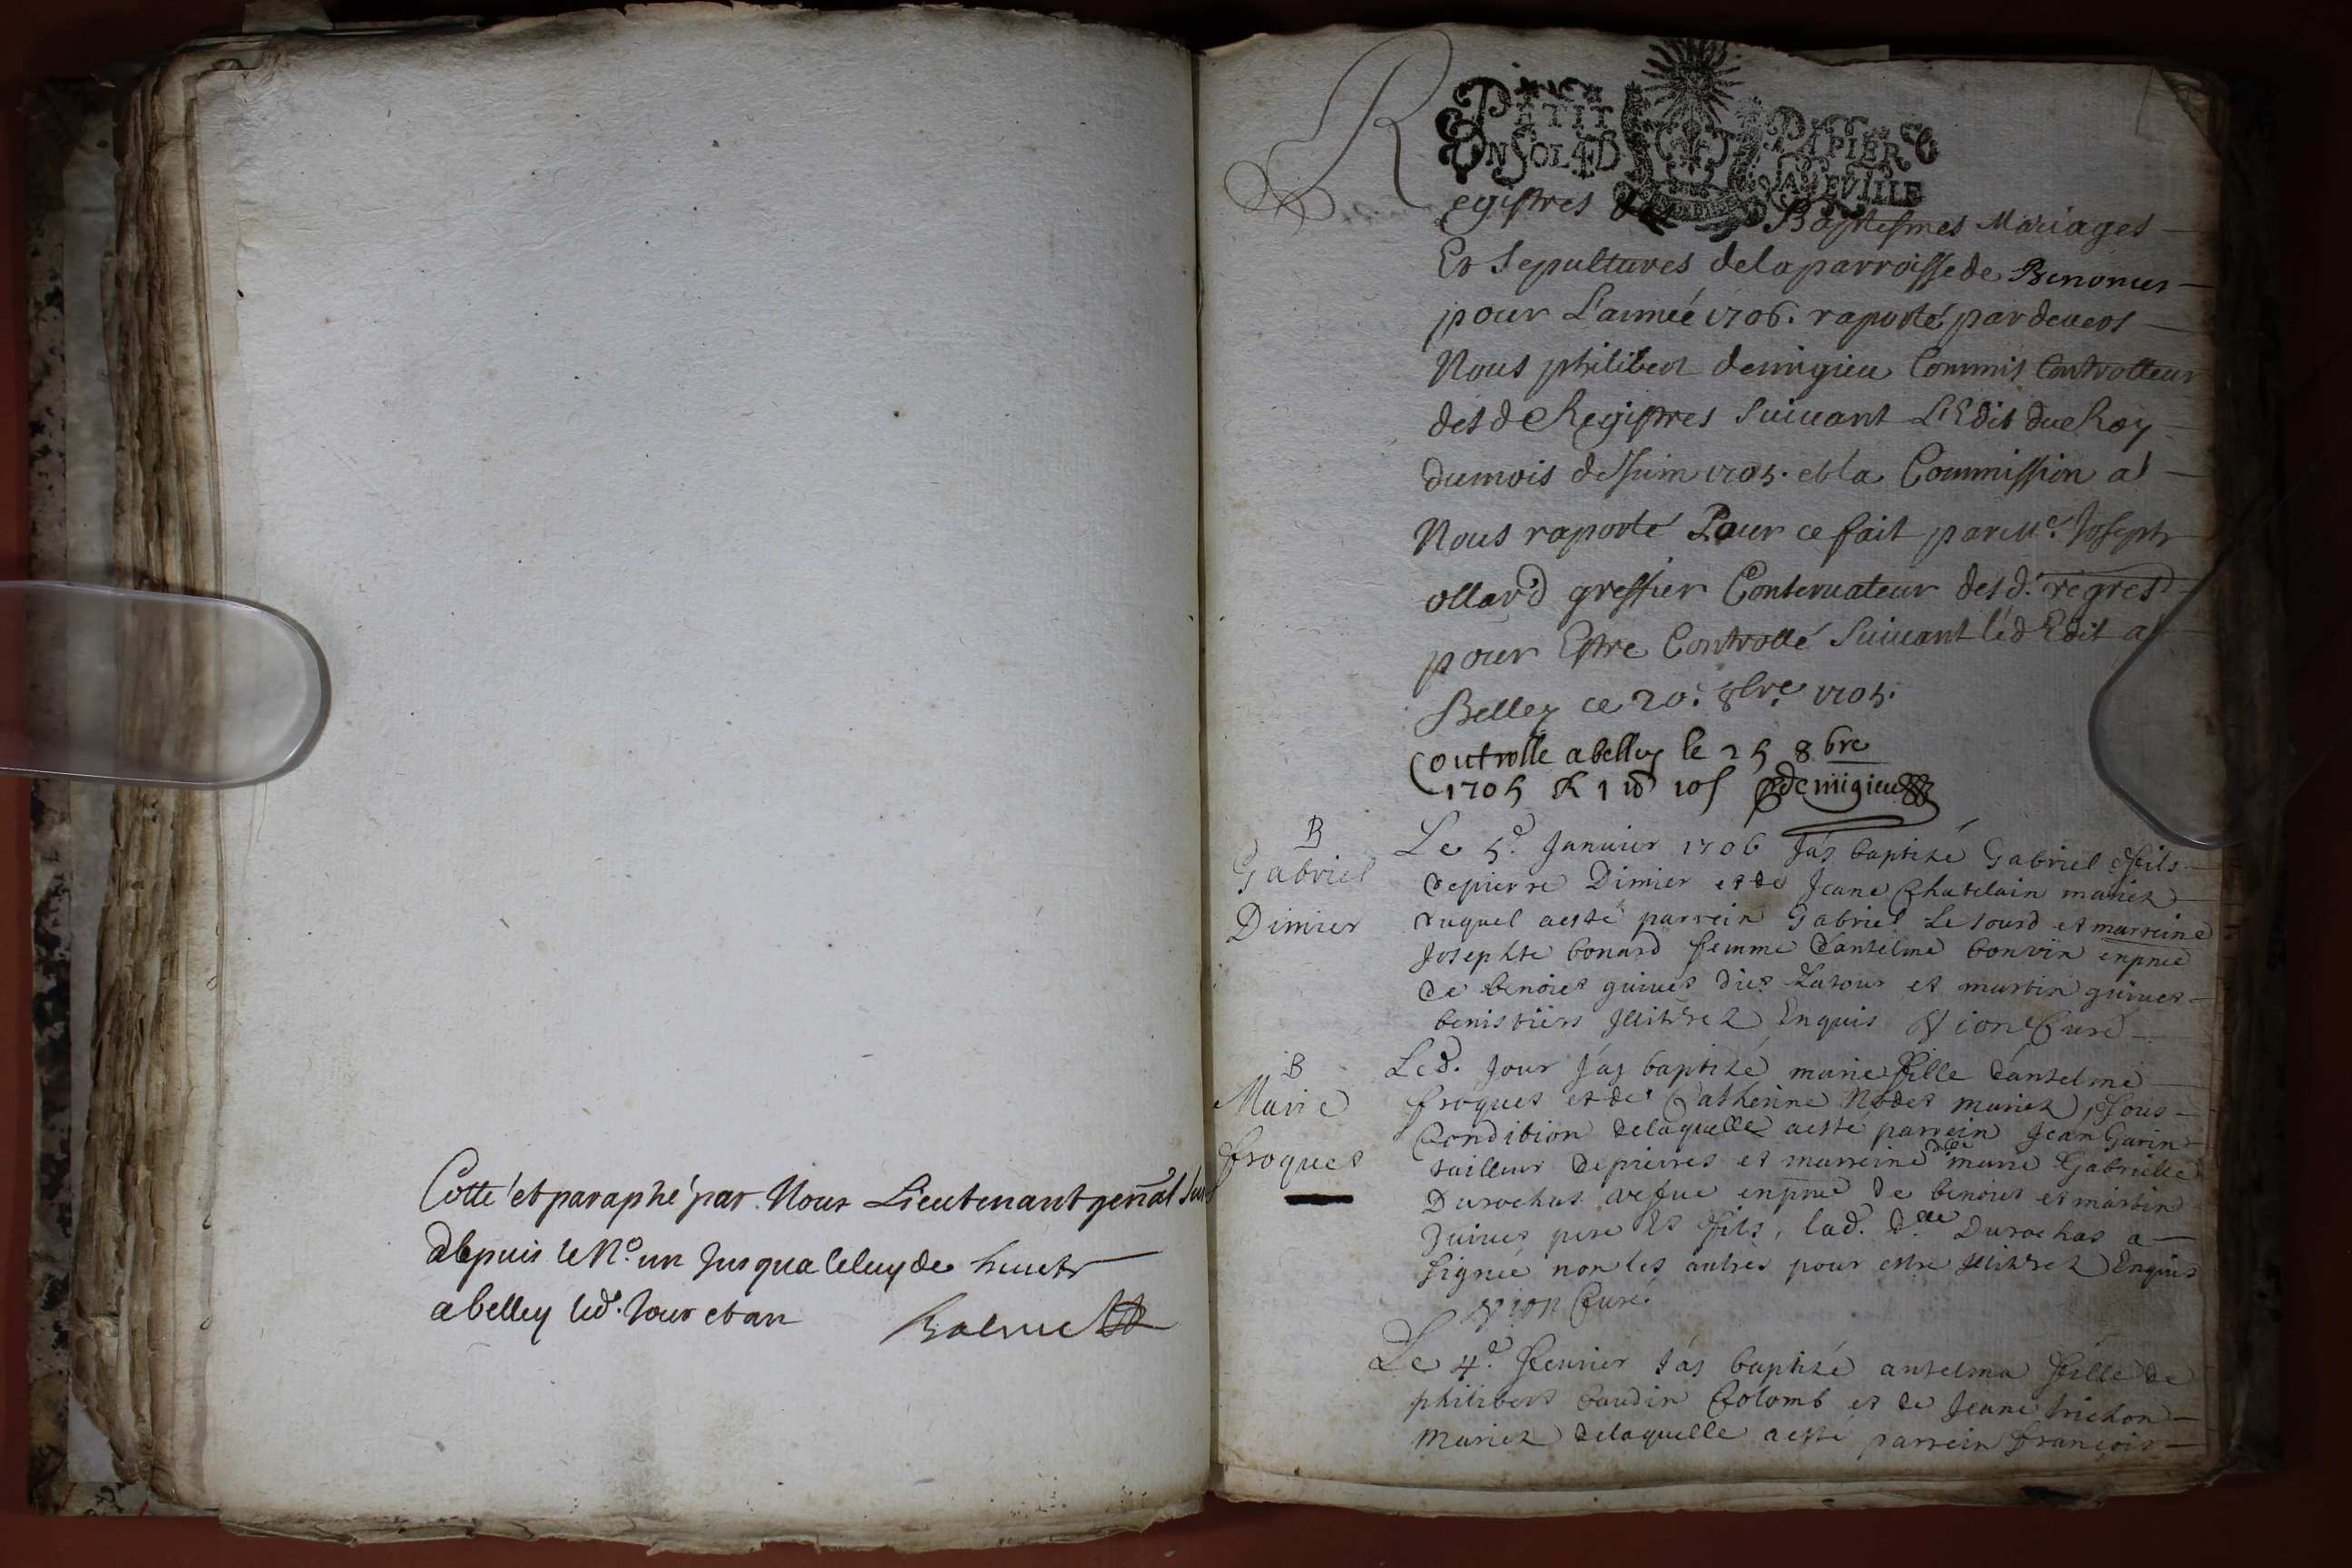 Cotté et paraphé par Nous Lieutenant genal
depuis le No. un Jusqua Celuy de huict
a belley led. Jour et an
PETIT PAPIER
UN SOL 4 D LA FEUILLE
Registres des Baptesmes Mariages
Et Sepultures de la parroisse de Benonces
pour L'année 1706. raporté pardevers
Nous philibert demigieu Commis Controlleur
desd Registres Suivant L'Edit du Roy
du mois de Juin 1705. et la Commission a
Nous raporté Pour ce fait par Me. Joseph
ollard greffier Conservateur desd. regres
pour Estre Controllé Suivant led Edit a
Belley ce 20. 8bre. 1705.
Controlle a belley le 25 8bre
1705 R 1 10s demigieu
B
Gabriel
Dimier
Le 5e. Januier 1706 Jáy baptizé Gabriel fils
de pierre Dimier et de Jeane Chatelain mariez
duquel a esté parrein Gabriel Letourd et marreine
Josephte bonard femme d'antelme bonvin enpnce
de benoiet guiuet diet Latour et martin guiuet
benistiers illitrez Enquis Vion Curé
B
Marie
froquet
Led. Jour J'áy baptizé marie fille dántelme
froquet et de Catherine Nodet mariez, sous
Condition delaquelle a esté parrein Jean Garin
tailleur de pierres et marreine dlle marie Gabrielle
Durochat vefue enpnce de benoiet et martin
Guiuet pere et fils, lad. dlle Durochas a
signée non les autres pour estre illitrez Enquis
Vion Curé.
Le 4e. feurier J'áy baptizé antelma fille de
philibert baudin Colomb et de Jeane trichon
mariez delaquelle a esté parrein françois